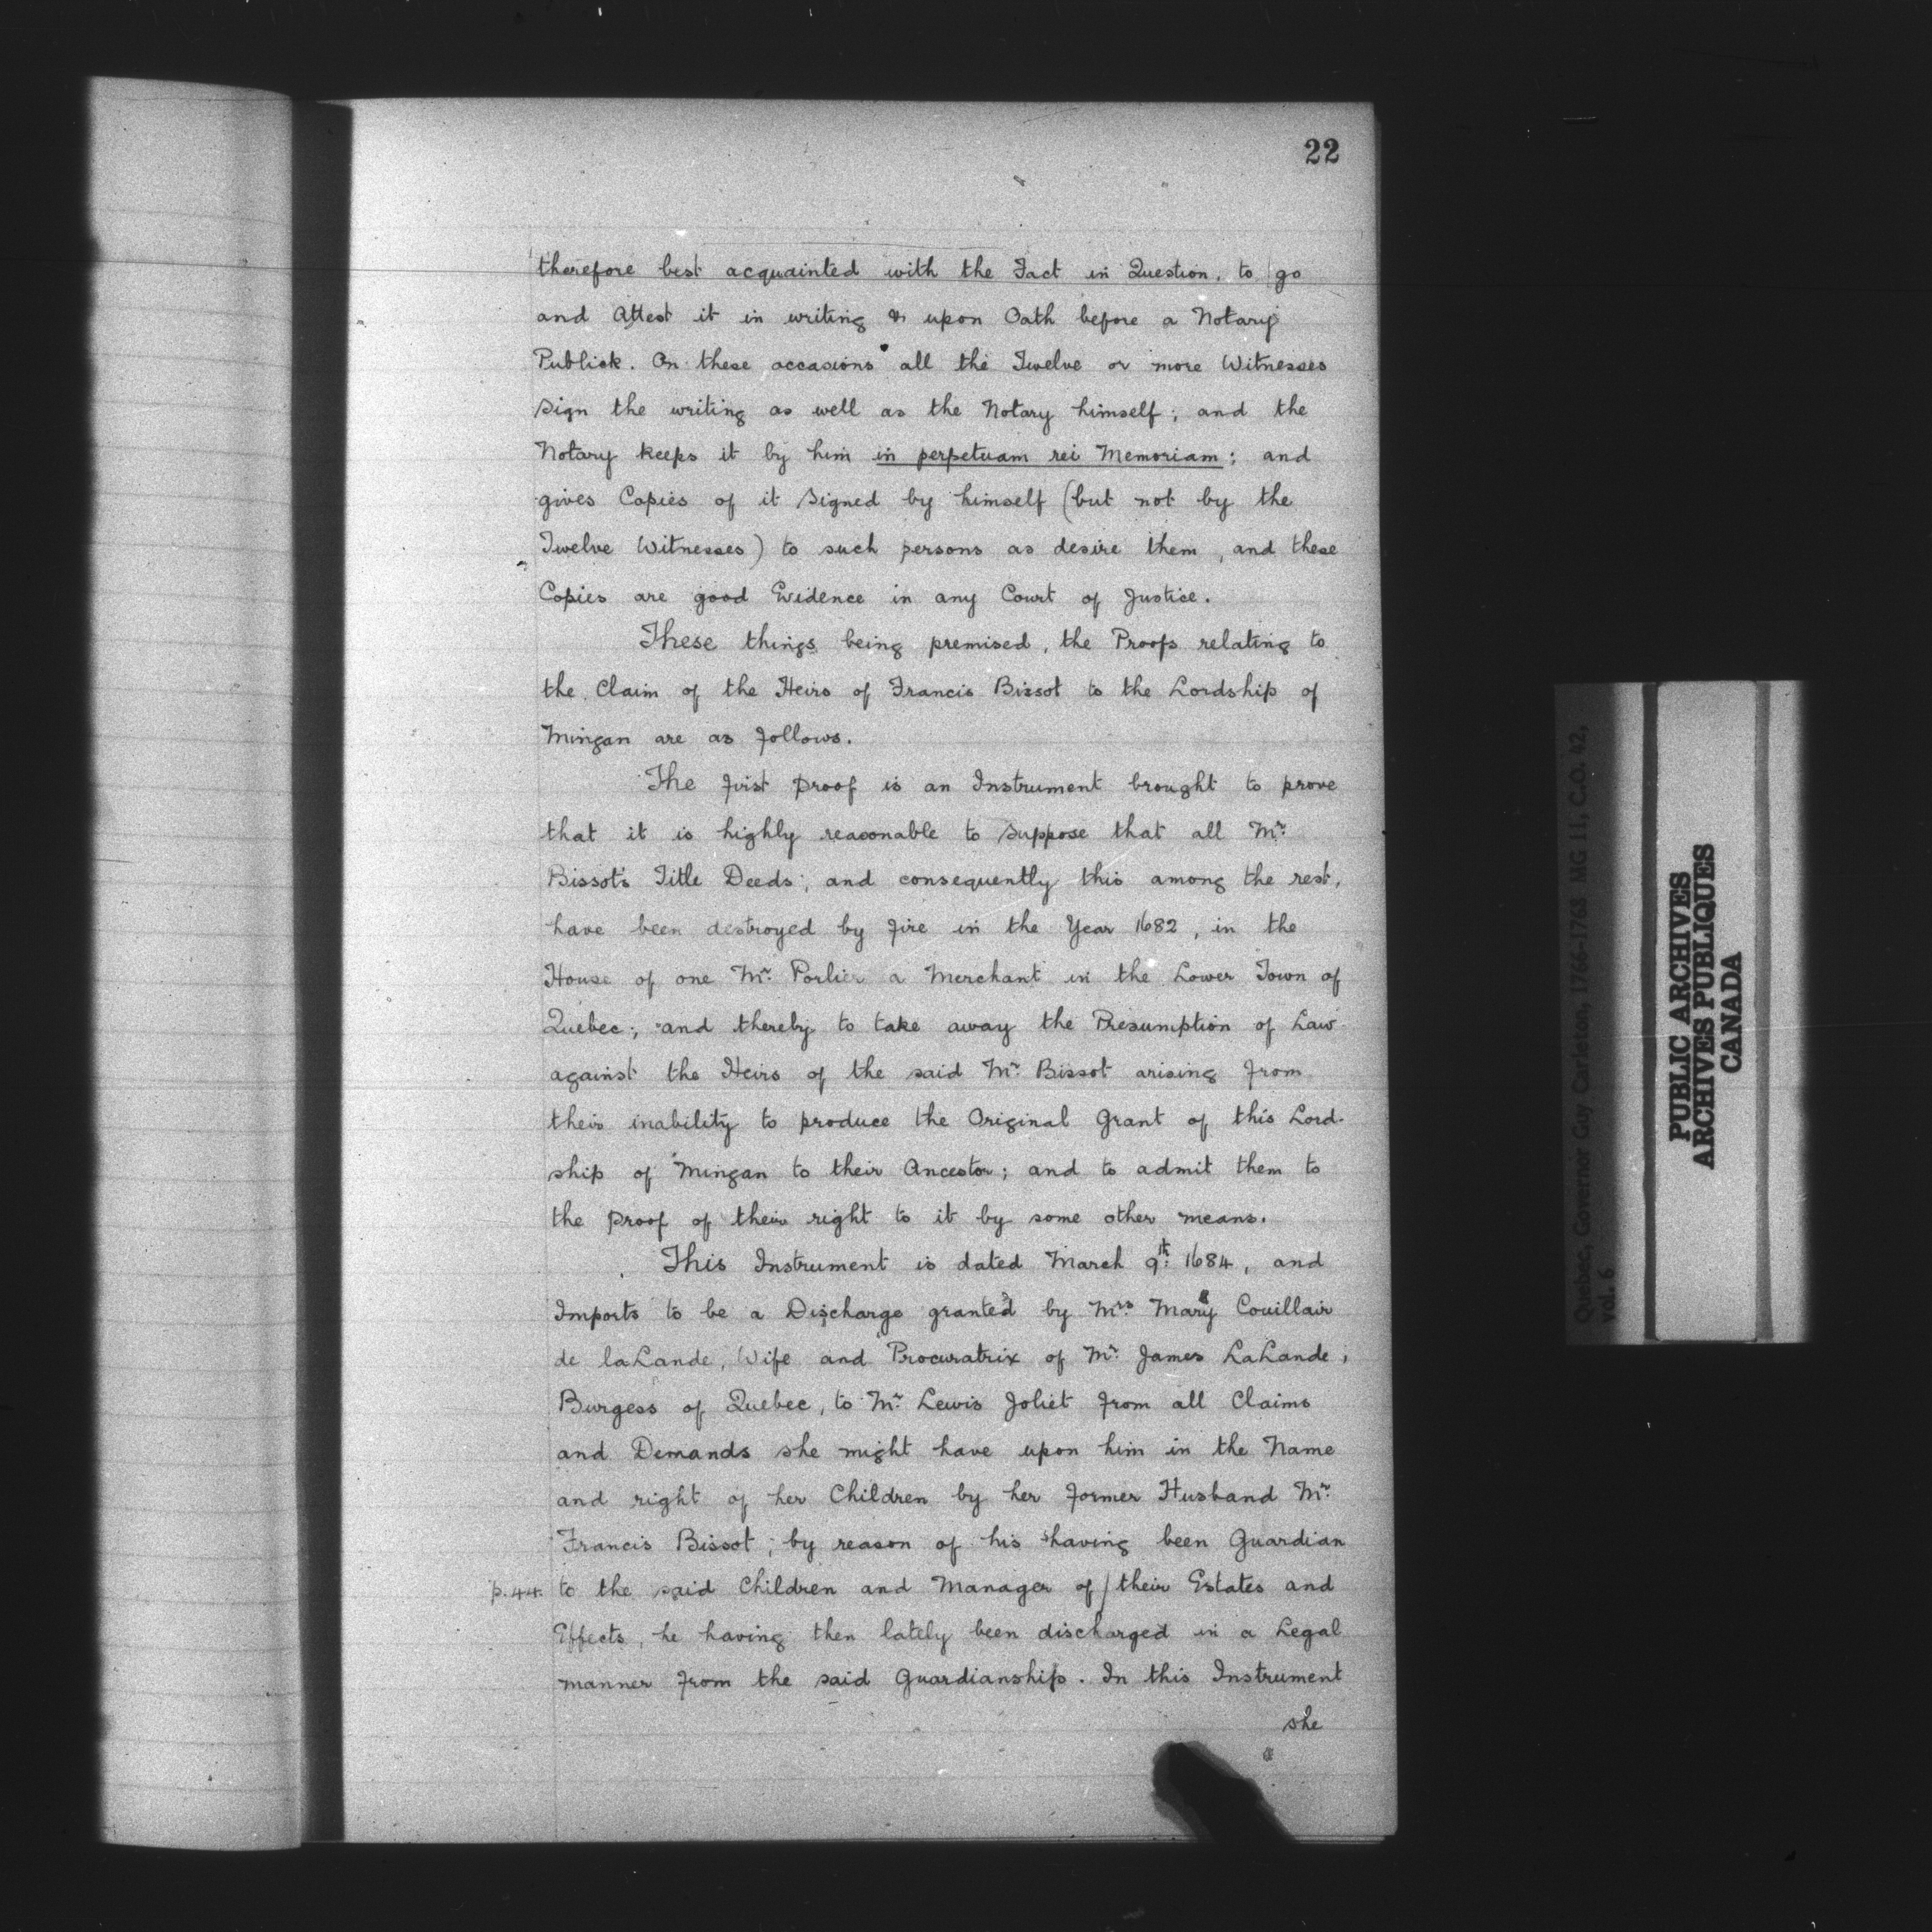 22
therefore best acquainted with the Fact in Question, to / go
and Attest it in writing & upon Oath before a Notary
Publick. On these occasions all the Twelve or more Witnesses
sign the writing as well as the Notary himself; and the
Notary keeps it by him in perpetuam rei Memoriam; and
gives Copies of it signed by himself (but not by the
Twelve Witnesses) to such persons as desire them, and these
Copies are good Evidence in any Court of Justice.
These things being premised, the Proofs relating to
the Claim of the Heirs of Francis Bissot to the Lordship of
Mingan are as follows.
The first proof is an Instrument brought to prove
that it is highly reasonable to suppose that all Mr.
Bissot's Title Deeds; and consequently this among the rest,
have been destroyed by fire in the Year 1682, in the
House of one Mr. Porlier a Merchant in the Lower Town of
Quebec; and thereby to take away the Presumption of Law
against the Heirs of the said Mr. Bissot arising from
their inability to produce the Original Grant of this Lord-
ship of Mingan to their Ancestor; and to admit them to
the proof of their right to it by some other means.
This Instrument is dated March 9th. 1684, and
Imports to be a Discharge granted by Mrs. Mary Couillair
de laLande, Wife and Procuratrix of Mr. James LaLande,
Burgess of Quebec, to Mr. Lewis Joliet from all Claims
and Demands she might have upon him in the Name
and right of her Children by her former Husband Mr.
Francis Bissot; by reason of his having been Guardian
p.44. to the said Children and Manager of / their Estates and
Effects, he having then lately been discharged in a Legal
manner from the said Guardianship. In this Instrument
she
Quebec, Governor Guy Carleton, 1766-1768 MG 11, C.O. 42,
vol. 6
PUBLIC ARCHIVES
ARCHIVES PUBLIQUES
CANADA